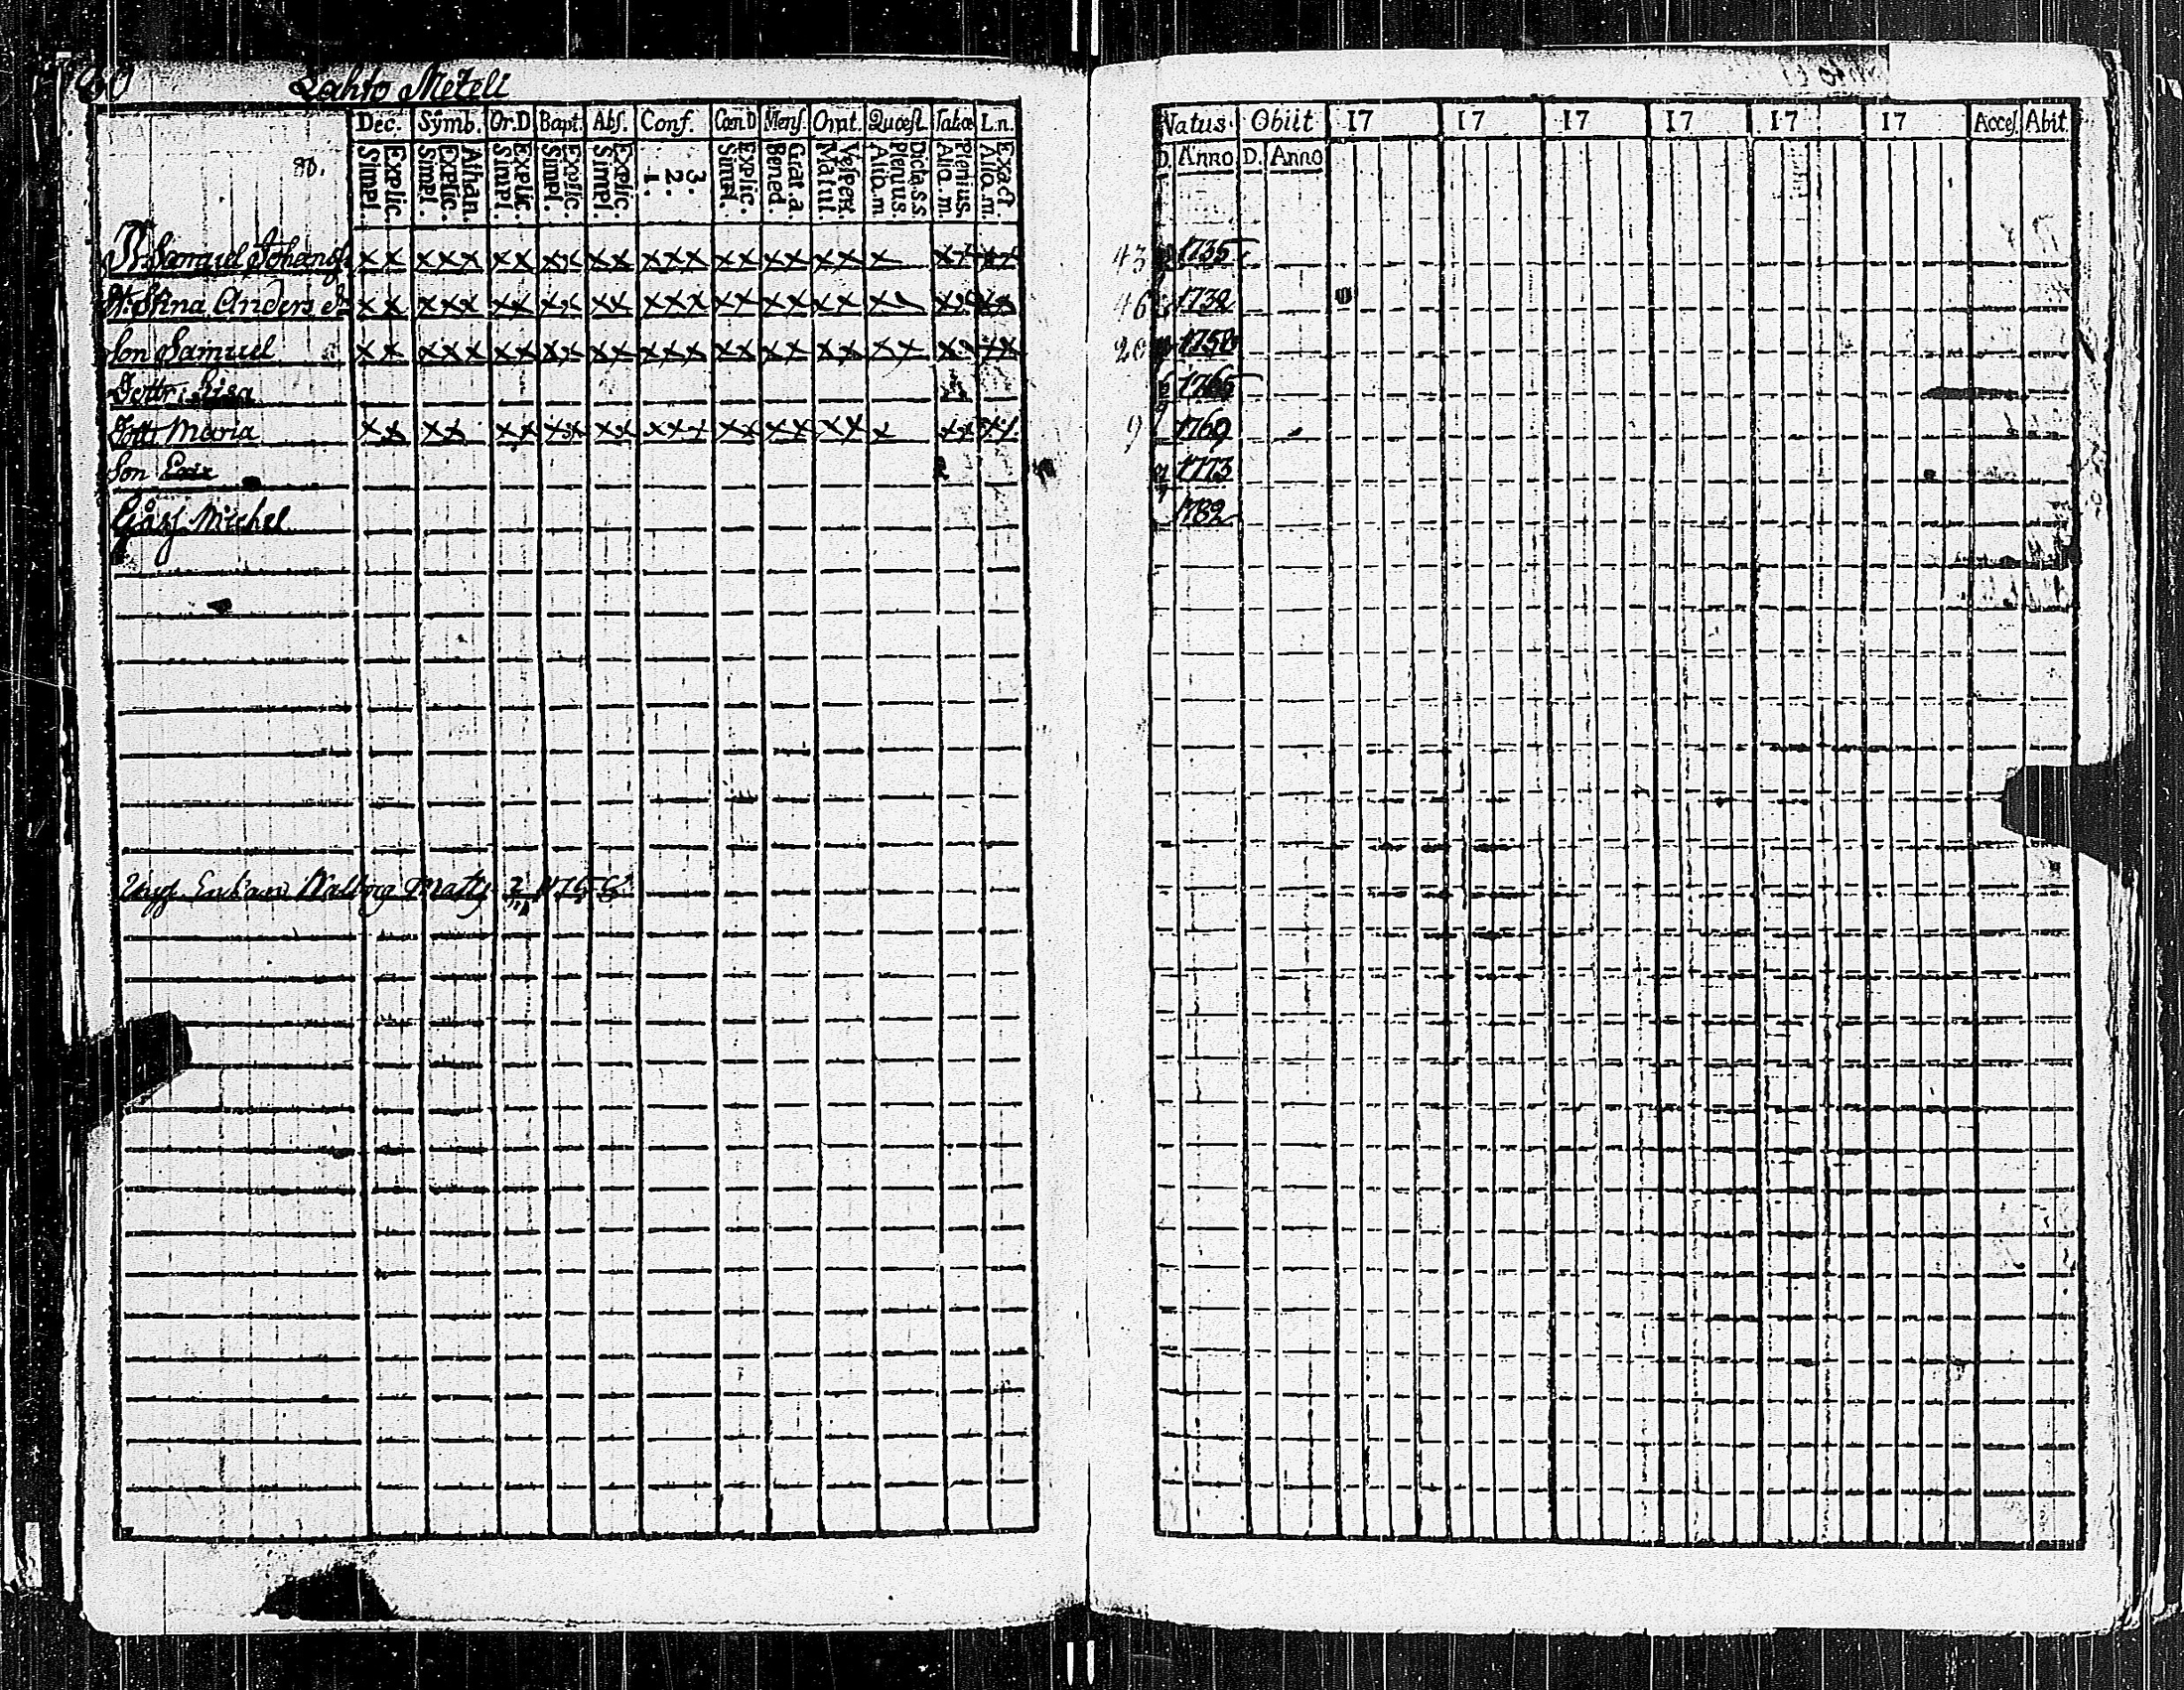 60 Lahto Meteli
Dec. Symb. Or.D Bapt. Abs. Conf. Cœn.D Mens. Orat. Quæst. Tabœ L.n.
Simpl. Explic. Simpl. Explic. Athan. Simpl. Explic. Simpl. Explic. Simpl. Explic. 1. 2. 3. Simpl. Explic. Bened. Grat. a. Matut. Vespert. Aliq. m. Plenius. Dicta. S.S. Aliq. m. Plenius. Aliq. m. Exact
Samuel Johans x x x x x x x x x x x x x x x x x x x x x x x x
Stina Anders x x x x x x x x x x x x x x x x x x x
Son Samuel x x x x x x x x x x x x x x x x x x x x x
Dottr: Lisa
Dottr Maria x x x x x x x x x x x x x x x x x x x
Son
Michel
Walborg Matts 1758
Natus Obiit 17 17 17 17 17 17 Acces. Abit.
D. Anno D. Anno
43 1735
46 1732
20 1758
1765
9 1769
1773
1782